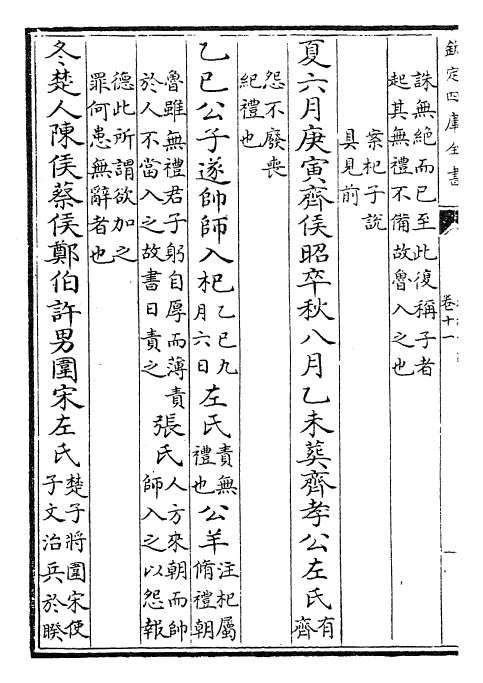 欽定四庫全書
卷十一
誅無絶而已至此復稱子者
起其無禮不備故魯入之也
案杞子說
具見前
夏六月庚寅齊侯昭卒秋八月乙未葬齊孝公左氏有齊
怨不廢喪
紀禮也
乙巳公子遂帥師入杞乙巳九月六日左氏責無禮也公羊注杞屬脩禮朝
魯雖無禮君子躬自厚而薄責於人不當入之故書日責之張氏人方來朝而帥師入之以怨報
德此所謂欲加之
罪何患無辭者也
冬楚人陳侯蔡侯鄭伯許男圍宋左氏楚子將圍宋使子文治兵於睽